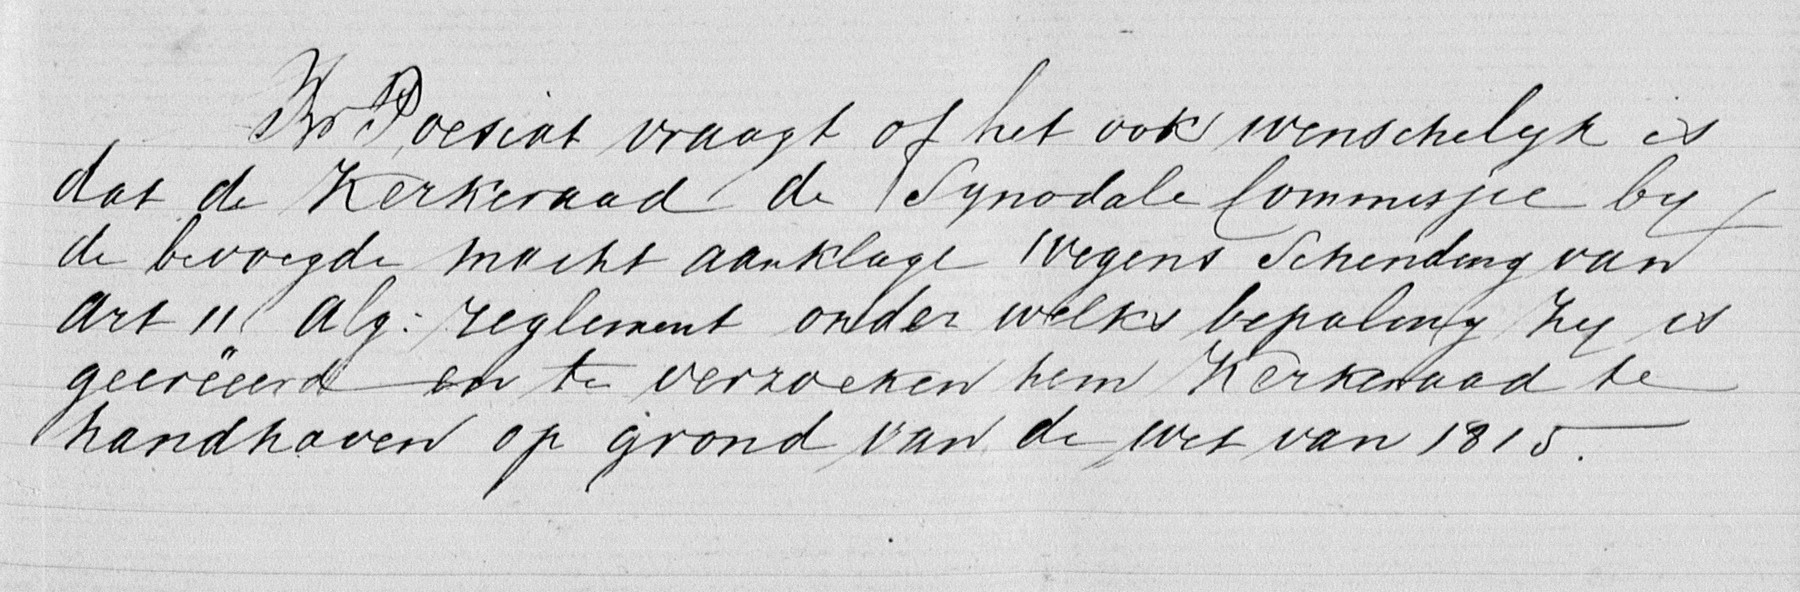 Br Poesiat vraagt of het ook wenschelyk is
dat de Kerkeraad de Synodale Commissie by
de bevoegde macht aanklage wegens Schending van
Art 11 Alg: reglement onder welks bepaling zy is
gecreëerd en te verzoeken hem Kerkeraad te
handhaven op grond van de wet van 1815.